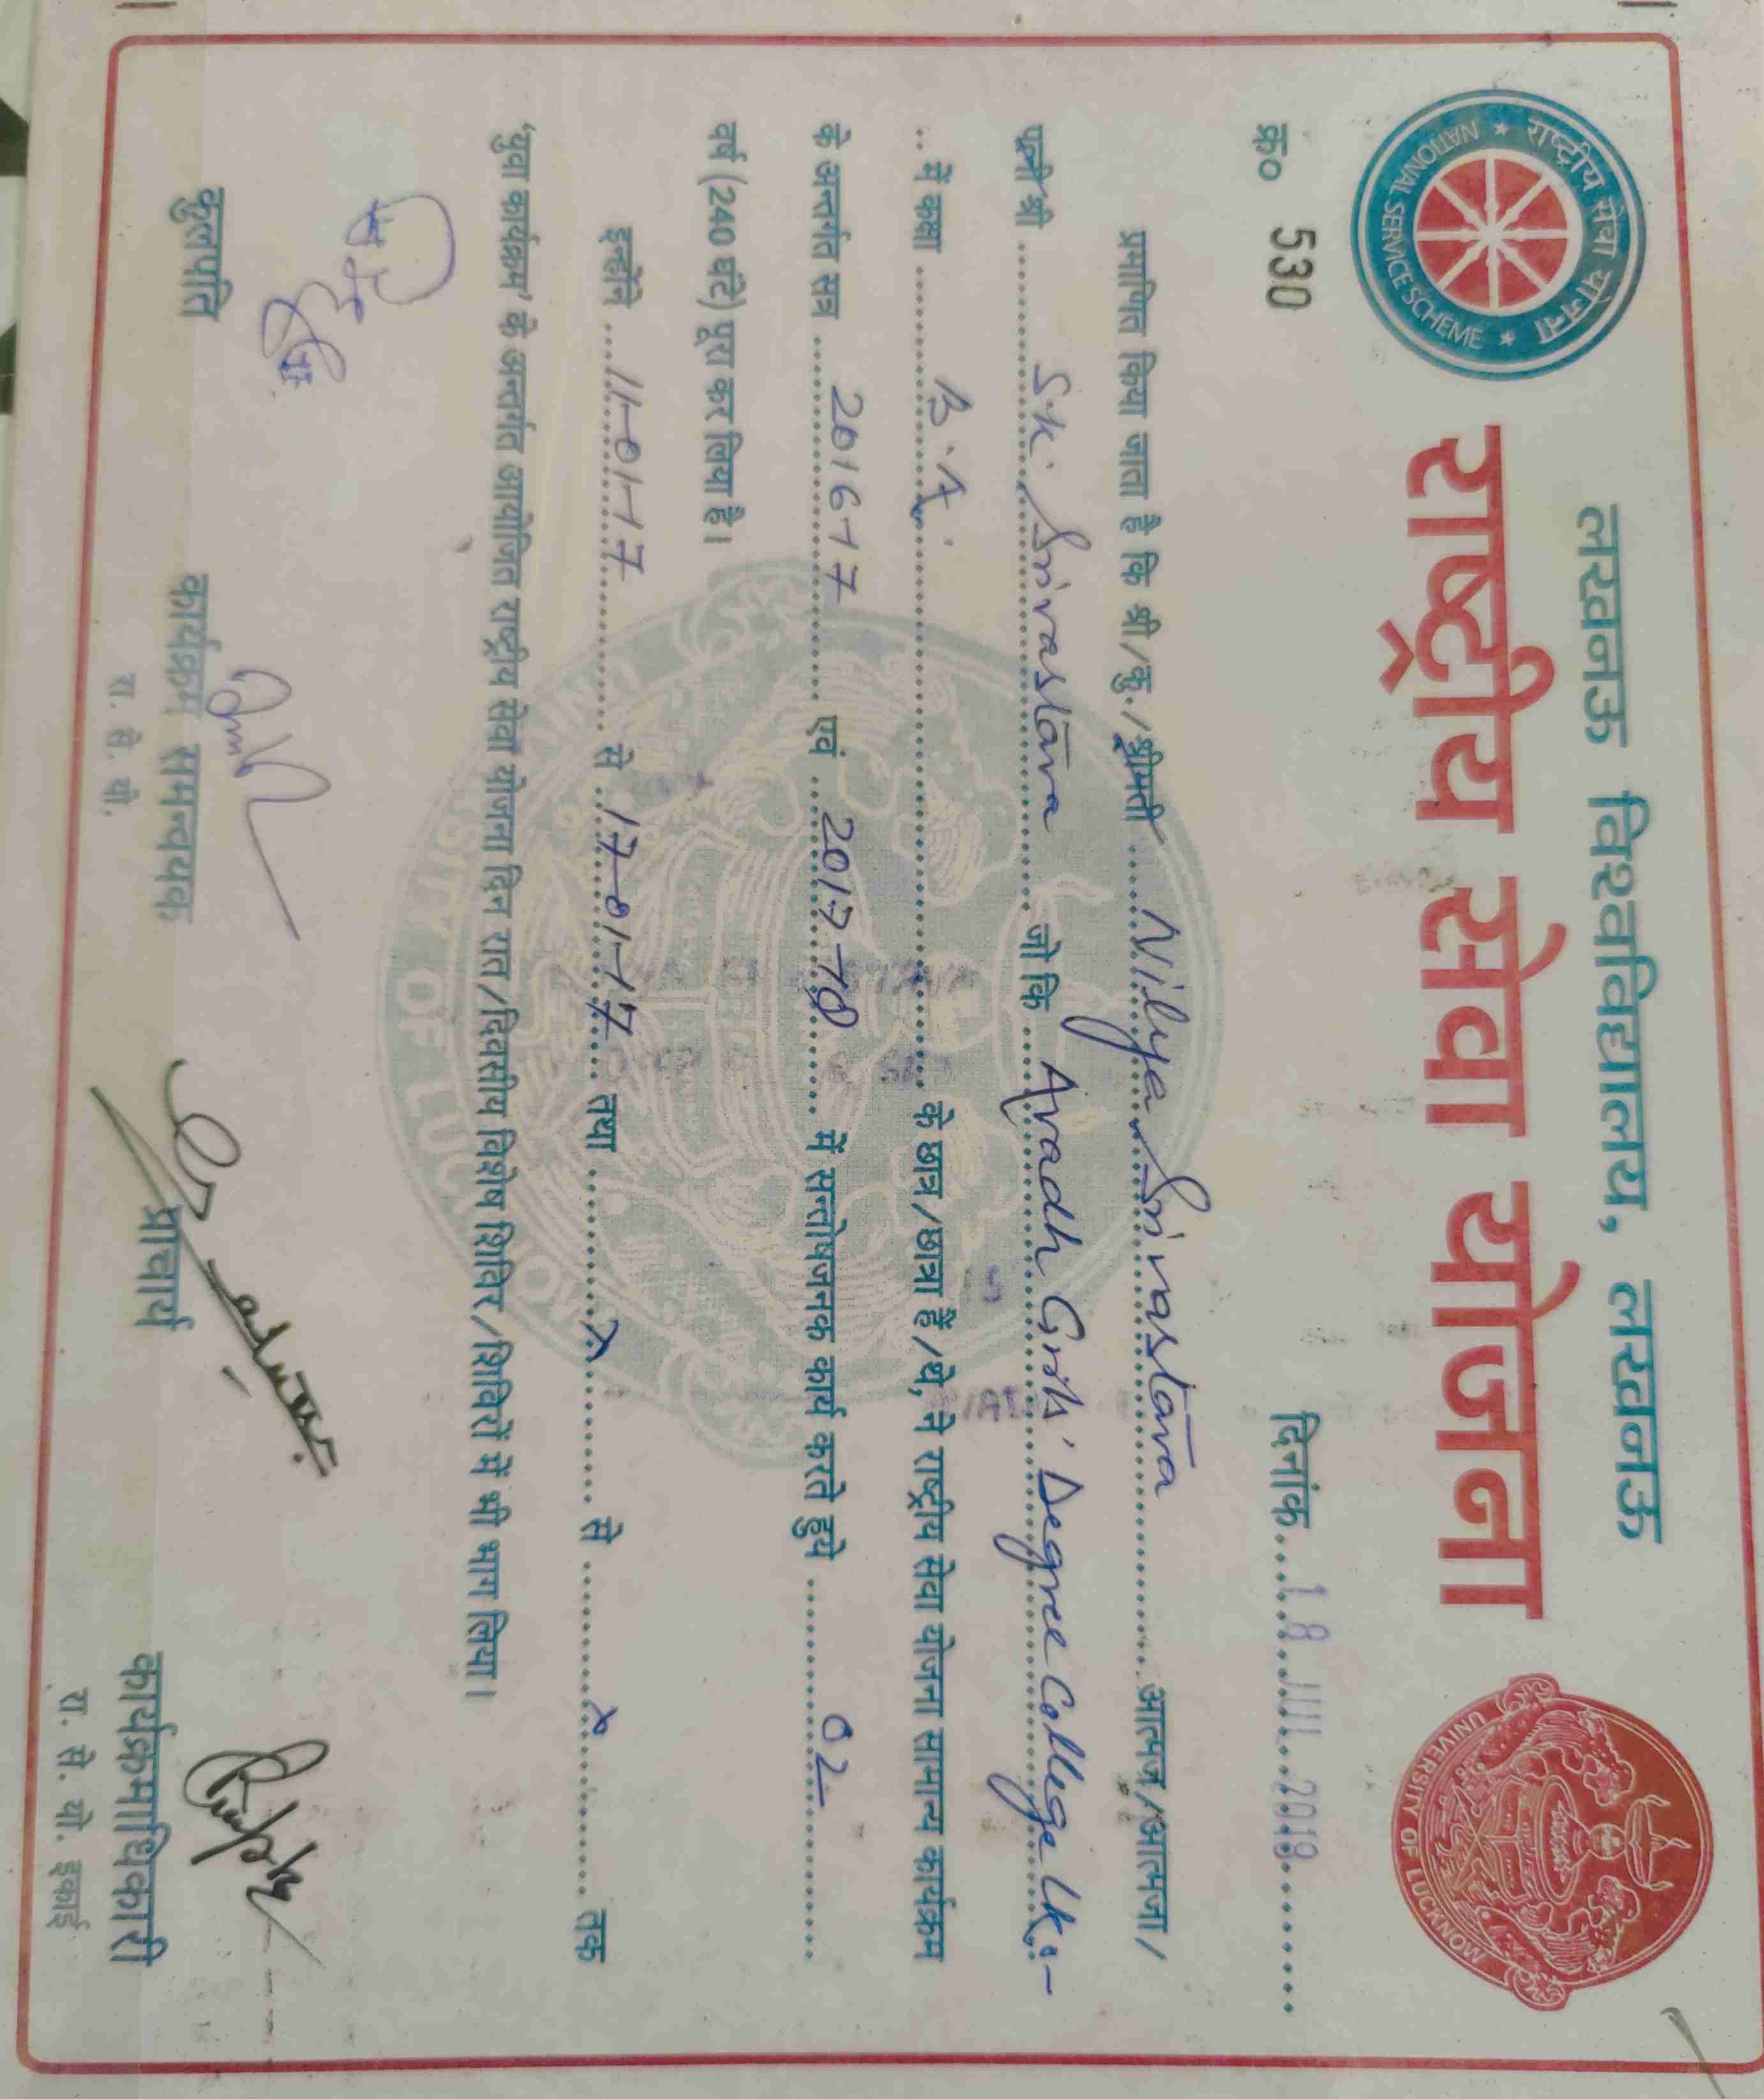 लखनऊ विश्वविद्यालय, लखनऊ
राष्ट्रीय सेवा योजना
राष्ट्रीय सेवा योजना
NATIONAL SERVICE SCHEME
UNIVERSITY OF LUCKNOW
क्र० 530 दिनांक 18 JUL 2018
प्रमाणित किया जाता है कि श्री/कु./श्रीमती Nitya Srivastava आत्मज/आत्मजा/
पत्नी श्री S.K. Srivastava जो कि Avadh Girls' Degree College Lko-
में कक्षा B.A. के छात्र/छात्रा हैं/थे, ने राष्ट्रीय सेवा योजना सामान्य कार्यक्रम
के अन्तर्गत सत्र 2016-17 एवं 2017-18 में सन्तोषजनक कार्य करते हुये 02
वर्ष (240 घंटे) पूरा कर लिया है।
इन्होंने 11-01-17 से 17-01-17 तथा x से x तक
'युवा कार्यक्रम' के अन्तर्गत आयोजित राष्ट्रीय सेवा योजना दिन रात/दिवसीय विशेष शिविर/शिविरों में भी भाग लिया।
कुलपति कार्यक्रम समन्वयक प्राचार्य कार्यक्रमाधिकारी
रा. से. यो. रा. से. यो. इकाई